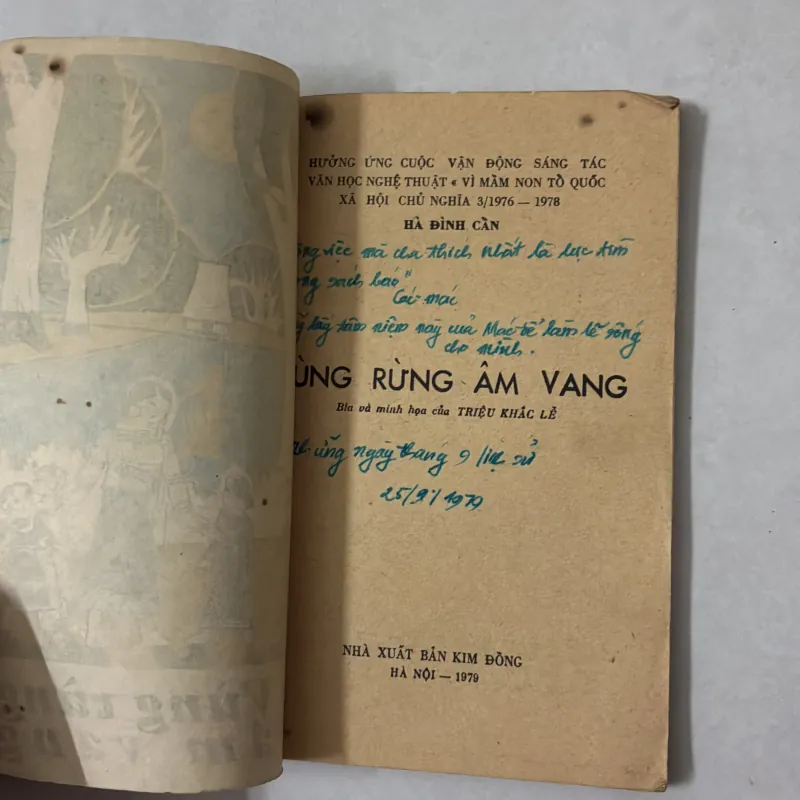 HƯỞNG ỨNG CUỘC VẬN ĐỘNG SÁNG TÁC
VĂN HỌC NGHỆ THUẬT « VÌ MẦM NON TỔ QUỐC
XÃ HỘI CHỦ NGHĨA 3/1976 — 1978
HÀ ĐÌNH CẦN
việc mà cha thích nhất là lục tìm
sách báo"
Các mác
này của Mác để làm lẽ sống
cho mình.
ÙNG RỪNG ÂM VANG
Bìa và minh họa của TRIỆU KHẮC LỄ
ngày tháng 9 lịch sử
25/9/1979
NHÀ XUẤT BẢN KIM ĐỒNG
HÀ NỘI — 1979